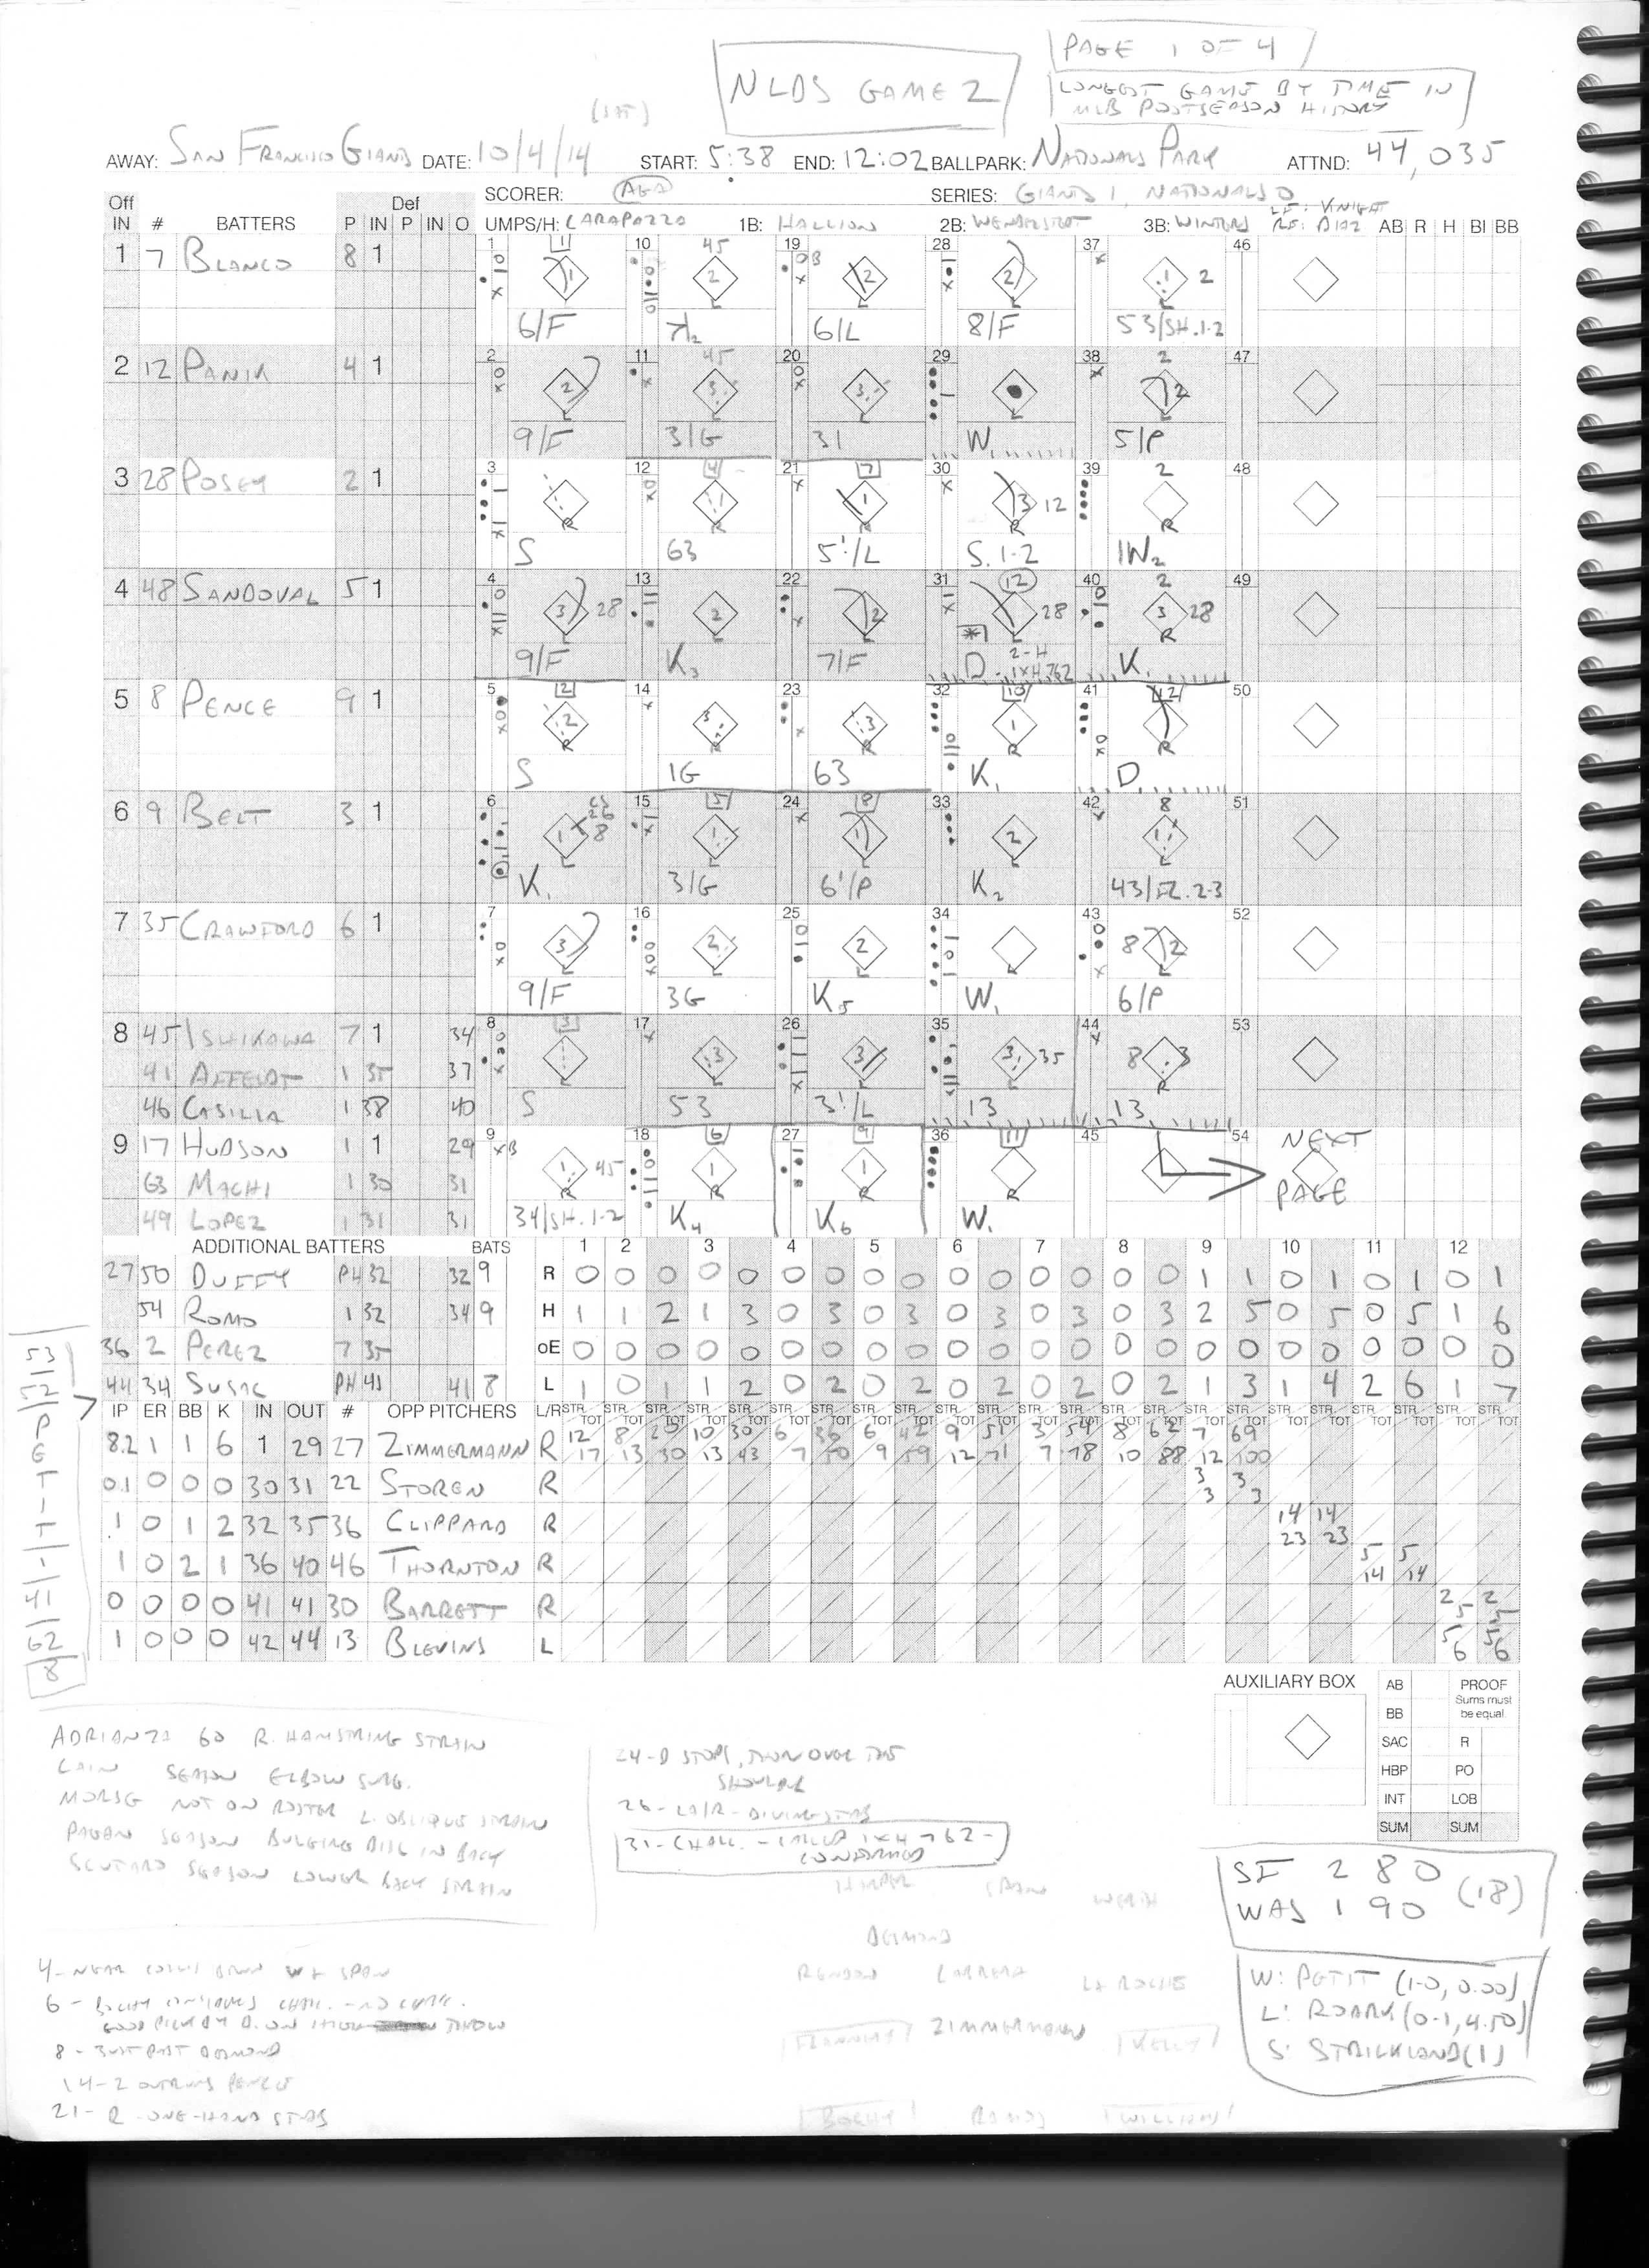 PAGE 1 OF 4
NLDS GAME 2
LONGEST GAME BY TIME IN
MLB POSTSEASON HISTORY
(SAT)
AWAY: SAN FRANCISCO GIANTS DATE: 10/4/14 START: 5:38 END: 12:02 BALLPARK: NATIONALS PARK ATTND: 44,035
SCORER: AGA SERIES: GIANTS 1, NATIONALS 0
LF: KNIGHT
UMPS/H: CARAPAZZA 1B: HALLION 2B: WENDELSTEDT 3B: WINTERS RF: DIAZ
Off Def
IN # BATTERS P IN P IN O AB R H BI BB
1 7 BLANCO 8 1
1 10 45 19 28 37 46
6/F 6/L 8/F 53/SH.1-2
2 12 PANIK 4 1
2 11 45 20 29 38 47
9/F 3/G 31 W 5/P
3 28 POSEY 2 1
3 12 21 30 39 48
S 63 5!/L S.1-2 IW2
4 48 SANDOVAL 5 1
4 13 22 31 40 49
9/F K3 7/F D 2-H 1X4.762 K1
5 8 PENCE 9 1
5 14 23 32 41 50
S 1G 63 K1 D
6 9 BELT 3 1
6 15 24 33 42 51
K1 3/G 6!/P K2 43/FL.2-3
7 35 CRAWFORD 6 1
7 16 25 34 43 52
9/F 3G K5 W1 6/P
8 45 ISHIKAWA 7 1 34
41 AFFELDT 1 35 37
46 CASILLA 1 38 40
8 17 26 35 44 53
S 53 3!/L 13 13
9 17 HUDSON 1 1 29
63 MACHI 1 30 31
49 LOPEZ 1 31 31
9 18 27 36 45 54
34/SH.1-2 K4 K6 W1
NEXT
PAGE
ADDITIONAL BATTERS BATS 1 2 3 4 5 6 7 8 9 10 11 12
27 50 DUFFY PH 32 32 9
54 ROMO 1 32 34 9
36 2 PEREZ 7 35
44 34 SUSAC PH 41 41 8
R 0 0 0 0 0 0 0 0 0 0 0 0 0 0 0 1 1 0 1 0 1 0 1
H 1 1 2 1 3 0 3 0 3 0 3 0 3 0 3 2 5 0 5 0 5 1 6
oE 0 0 0 0 0 0 0 0 0 0 0 0 0 0 0 0 0 0 0 0 0 0 0
L 1 0 1 1 2 0 2 0 2 0 2 0 2 0 2 1 3 1 4 2 6 1 7
IP ER BB K IN OUT # OPP PITCHERS L/R STR TOT
8.2 1 1 6 1 29 27 ZIMMERMANN R
12 8 20 10 30 6 36 6 42 9 51 3 54 8 62 7 69
17 13 30 13 43 7 50 9 59 12 71 7 78 10 88 12 100
0.1 0 0 0 30 31 22 STOREN R
3 3
3 3
1 0 1 2 32 35 36 CLIPPARD R
14 14
23 23
1 0 2 1 36 40 46 THORNTON R
5 5
14 14
0 0 0 0 41 41 30 BARRETT R
1 0 0 0 42 44 13 BLEVINS L
PETIT
AUXILIARY BOX
AB PROOF
Sums must
be equal.
BB
SAC R
HBP PO
INT LOB
SUM SUM
ADRIANZA 60 R. HAMSTRING STRAIN
CAIN SEASON ELBOW SURG.
MORSE NOT ON ROSTER L. OBLIQUE STRAIN
PAGAN SEASON BULGING DISC IN BACK
SCUTARO SEASON LOWER BACK STRAIN
24-D STOPS, THEN OVER THE
SHOULDER
26-LA/R-DIVING STAB
31-CHALL.-CALLED 1X4.762-
CONFIRMED
HARPER SPAN WERTH
DESMOND
RENDON CABRERA LA ROCHE
ZIMMERMANN
BOCHY RAMOS WILLIAMS
SF 2 8 0
WAS 1 9 0 (18)
W: PETIT (1-0, 0.00)
L: ROARK (0-1, 4.50)
S: STRICKLAND (1)
8-JUST PAST DESMOND
21-R-ONE-HAND STAB